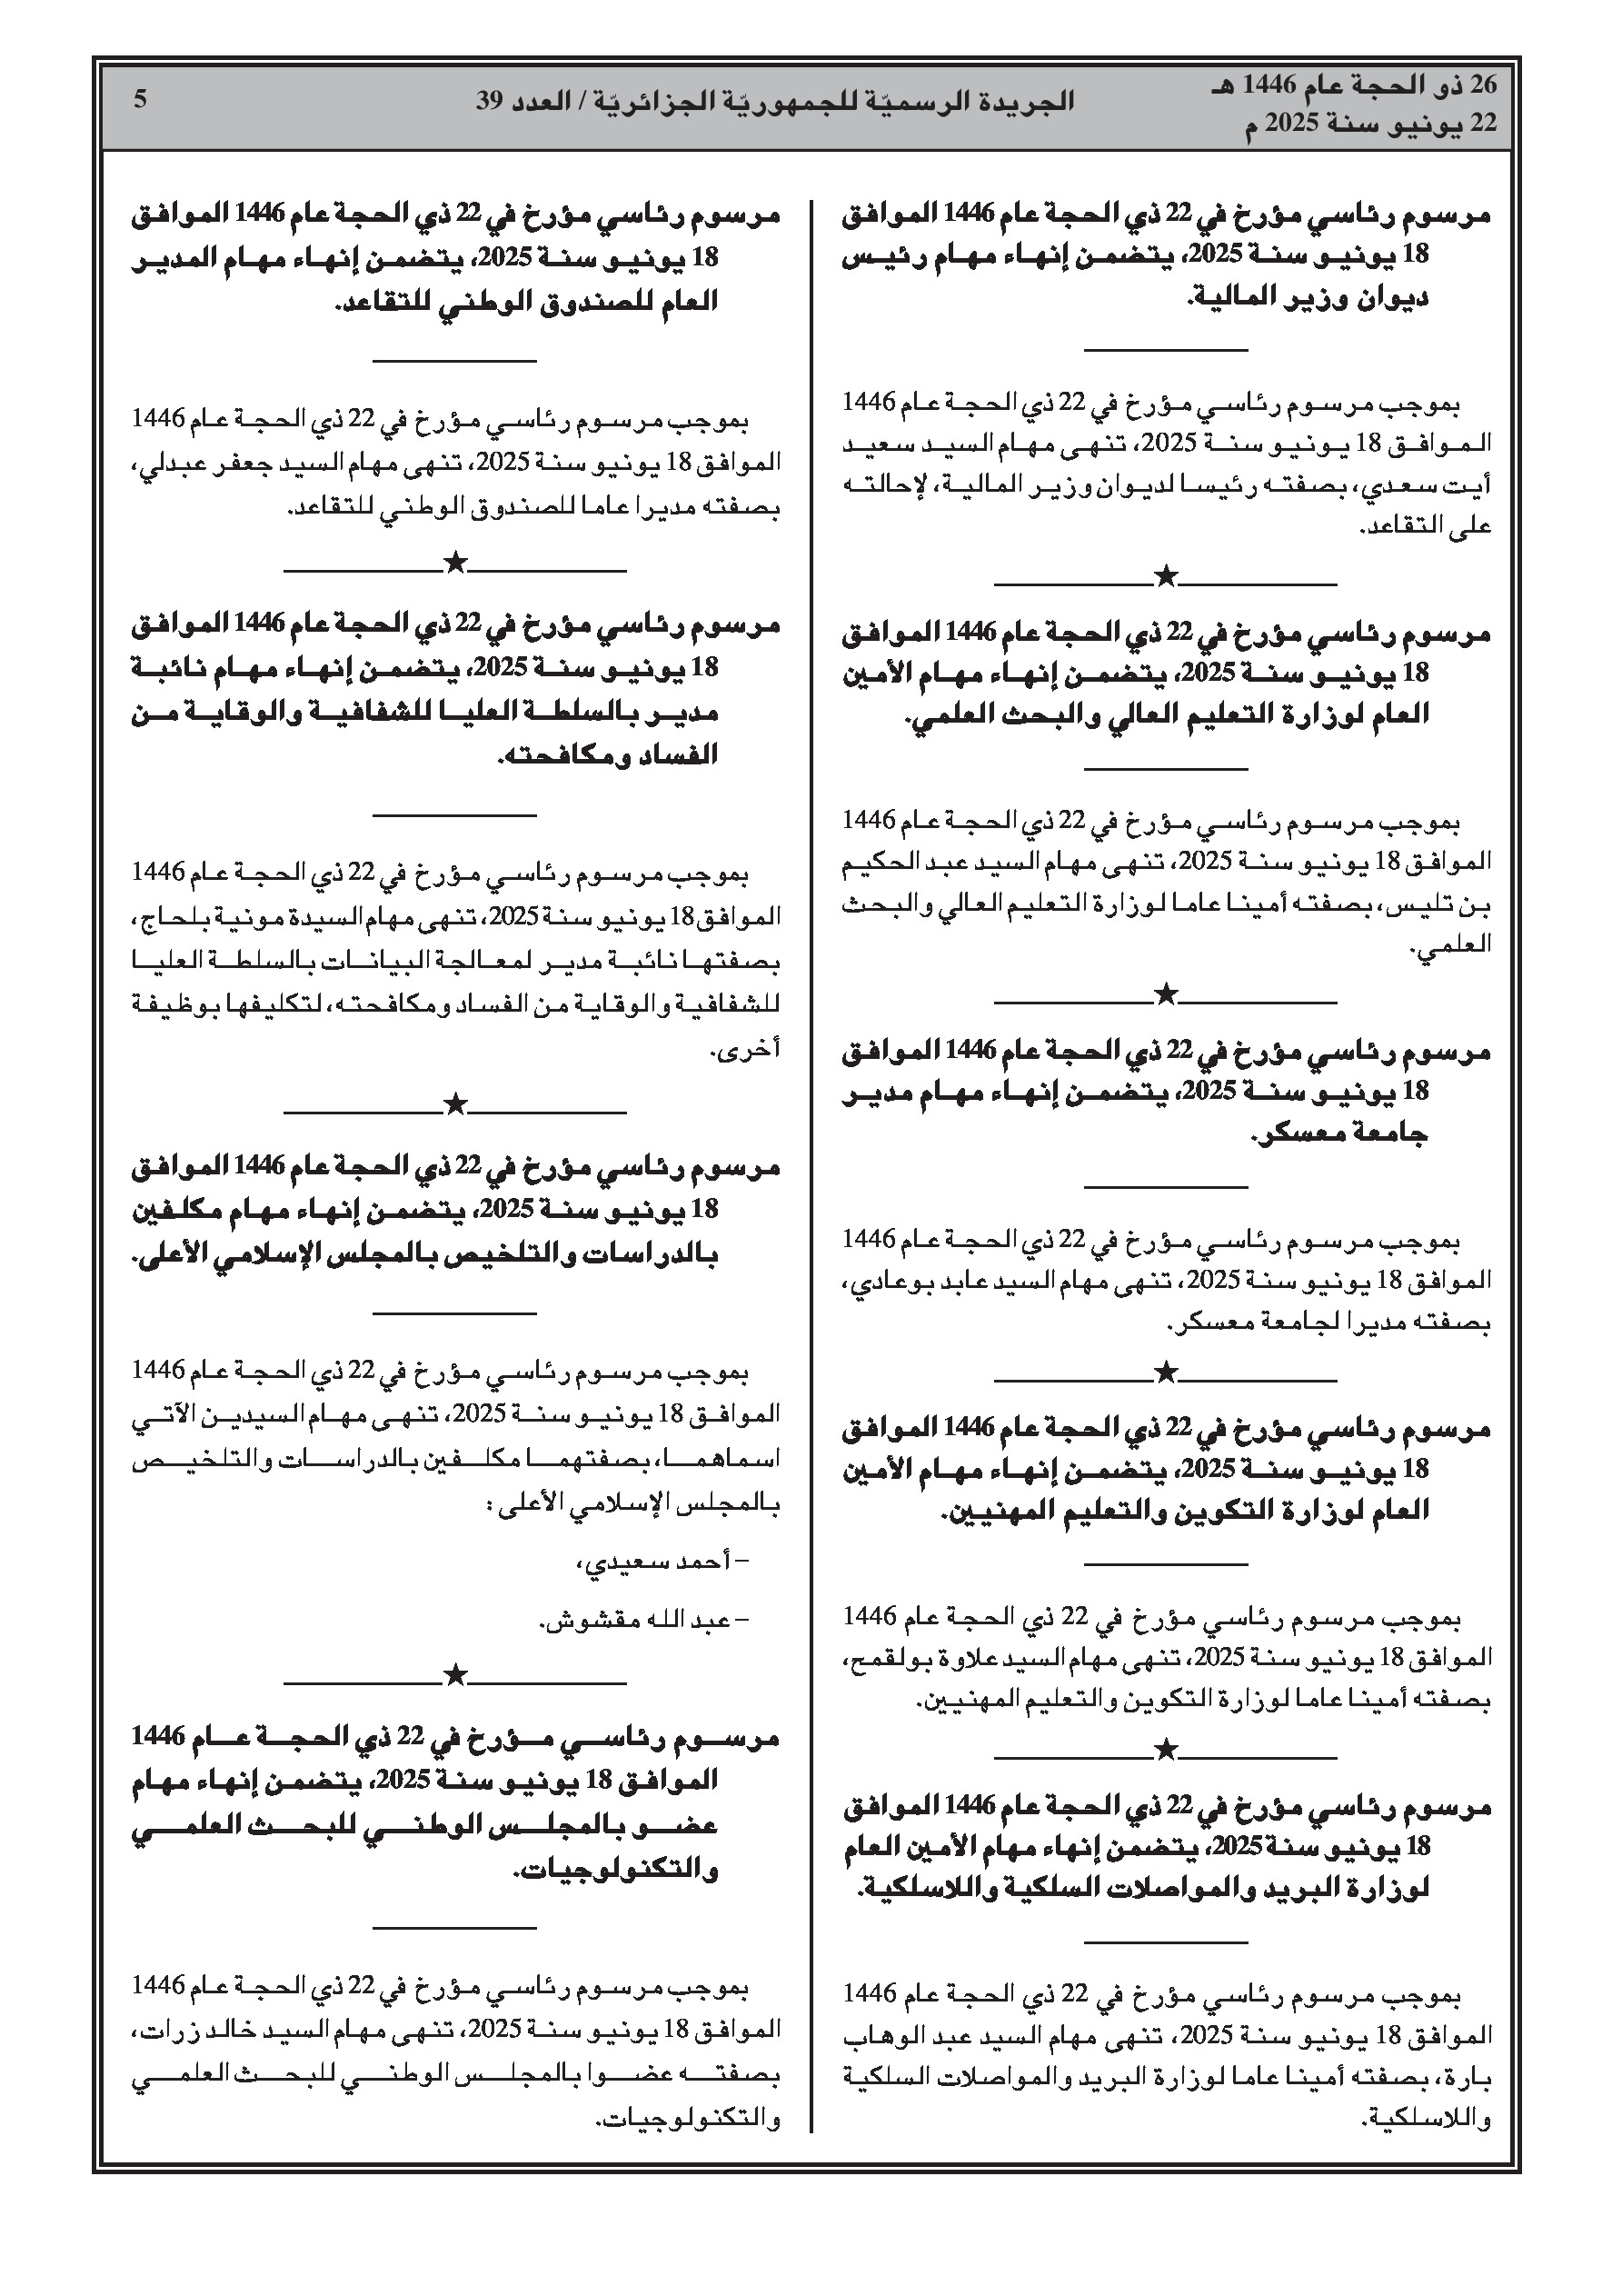 26 ذو الحجة عام 1446 هـ
22 يونيو سنة 2025 م
الجريدة الرسميّة للجمهوريّة الجزائريّة / العدد 39
5
مرسوم رئاسي مؤرخ في 22 ذي الحجة عام 1446 الموافق
18 يونيو سنة 2025، يتضمن إنهاء مهام رئيس
ديوان وزير المالية.
بموجب مرسوم رئاسي مؤرخ في 22 ذي الحجة عام 1446
الموافق 18 يونيو سنة 2025، تنهى مهام السيد سعيد
أيت سعدي، بصفته رئيسا لديوان وزير المالية، لإحالته
على التقاعد.
★
مرسوم رئاسي مؤرخ في 22 ذي الحجة عام 1446 الموافق
18 يونيو سنة 2025، يتضمن إنهاء مهام الأمين
العام لوزارة التعليم العالي والبحث العلمي.
بموجب مرسوم رئاسي مؤرخ في 22 ذي الحجة عام 1446
الموافق 18 يونيو سنة 2025، تنهى مهام السيد عبد الحكيم
بن تليس، بصفته أمينا عاما لوزارة التعليم العالي والبحث
العلمي.
★
مرسوم رئاسي مؤرخ في 22 ذي الحجة عام 1446 الموافق
18 يونيو سنة 2025، يتضمن إنهاء مهام مدير
جامعة معسكر.
بموجب مرسوم رئاسي مؤرخ في 22 ذي الحجة عام 1446
الموافق 18 يونيو سنة 2025، تنهى مهام السيد عابد بوعادي،
بصفته مديرا لجامعة معسكر.
★
مرسوم رئاسي مؤرخ في 22 ذي الحجة عام 1446 الموافق
18 يونيو سنة 2025، يتضمن إنهاء مهام الأمين
العام لوزارة التكوين والتعليم المهنيين.
بموجب مرسوم رئاسي مؤرخ في 22 ذي الحجة عام 1446
الموافق 18 يونيو سنة 2025، تنهى مهام السيد علاوة بولقمح،
بصفته أمينا عاما لوزارة التكوين والتعليم المهنيين.
★
مرسوم رئاسي مؤرخ في 22 ذي الحجة عام 1446 الموافق
18 يونيو سنة 2025، يتضمن إنهاء مهام الأمين العام
لوزارة البريد والمواصلات السلكية واللاسلكية.
بموجب مرسوم رئاسي مؤرخ في 22 ذي الحجة عام 1446
الموافق 18 يونيو سنة 2025، تنهى مهام السيد عبد الوهاب
بارة، بصفته أمينا عاما لوزارة البريد والمواصلات السلكية
واللاسلكية.
مرسوم رئاسي مؤرخ في 22 ذي الحجة عام 1446 الموافق
18 يونيو سنة 2025، يتضمن إنهاء مهام المدير
العام للصندوق الوطني للتقاعد.
بموجب مرسوم رئاسي مؤرخ في 22 ذي الحجة عام 1446
الموافق 18 يونيو سنة 2025، تنهى مهام السيد جعفر عبدلي،
بصفته مديرا عاما للصندوق الوطني للتقاعد.
★
مرسوم رئاسي مؤرخ في 22 ذي الحجة عام 1446 الموافق
18 يونيو سنة 2025، يتضمن إنهاء مهام نائبة
مدير بالسلطة العليا للشفافية والوقاية من
الفساد ومكافحته.
بموجب مرسوم رئاسي مؤرخ في 22 ذي الحجة عام 1446
الموافق 18 يونيو سنة 2025، تنهى مهام السيدة مونية بلحاج،
بصفتها نائبة مدير لمعالجة البيانات بالسلطة العليا
للشفافية والوقاية من الفساد ومكافحته، لتكليفها بوظيفة
أخرى.
★
مرسوم رئاسي مؤرخ في 22 ذي الحجة عام 1446 الموافق
18 يونيو سنة 2025، يتضمن إنهاء مهام مكلفين
بالدراسات والتلخيص بالمجلس الإسلامي الأعلى.
بموجب مرسوم رئاسي مؤرخ في 22 ذي الحجة عام 1446
الموافق 18 يونيو سنة 2025، تنهى مهام السيدين الآتي
اسماهما، بصفتهما مكلفين بالدراسات والتلخيص
بالمجلس الإسلامي الأعلى :
– أحمد سعيدي،
– عبد الله مقشوش.
★
مرسوم رئاسي مؤرخ في 22 ذي الحجة عام 1446
الموافق 18 يونيو سنة 2025، يتضمن إنهاء مهام
عضو بالمجلس الوطني للبحث العلمي
والتكنولوجيات.
بموجب مرسوم رئاسي مؤرخ في 22 ذي الحجة عام 1446
الموافق 18 يونيو سنة 2025، تنهى مهام السيد خالد زرات،
بصفته عضوا بالمجلس الوطني للبحث العلمي
والتكنولوجيات.